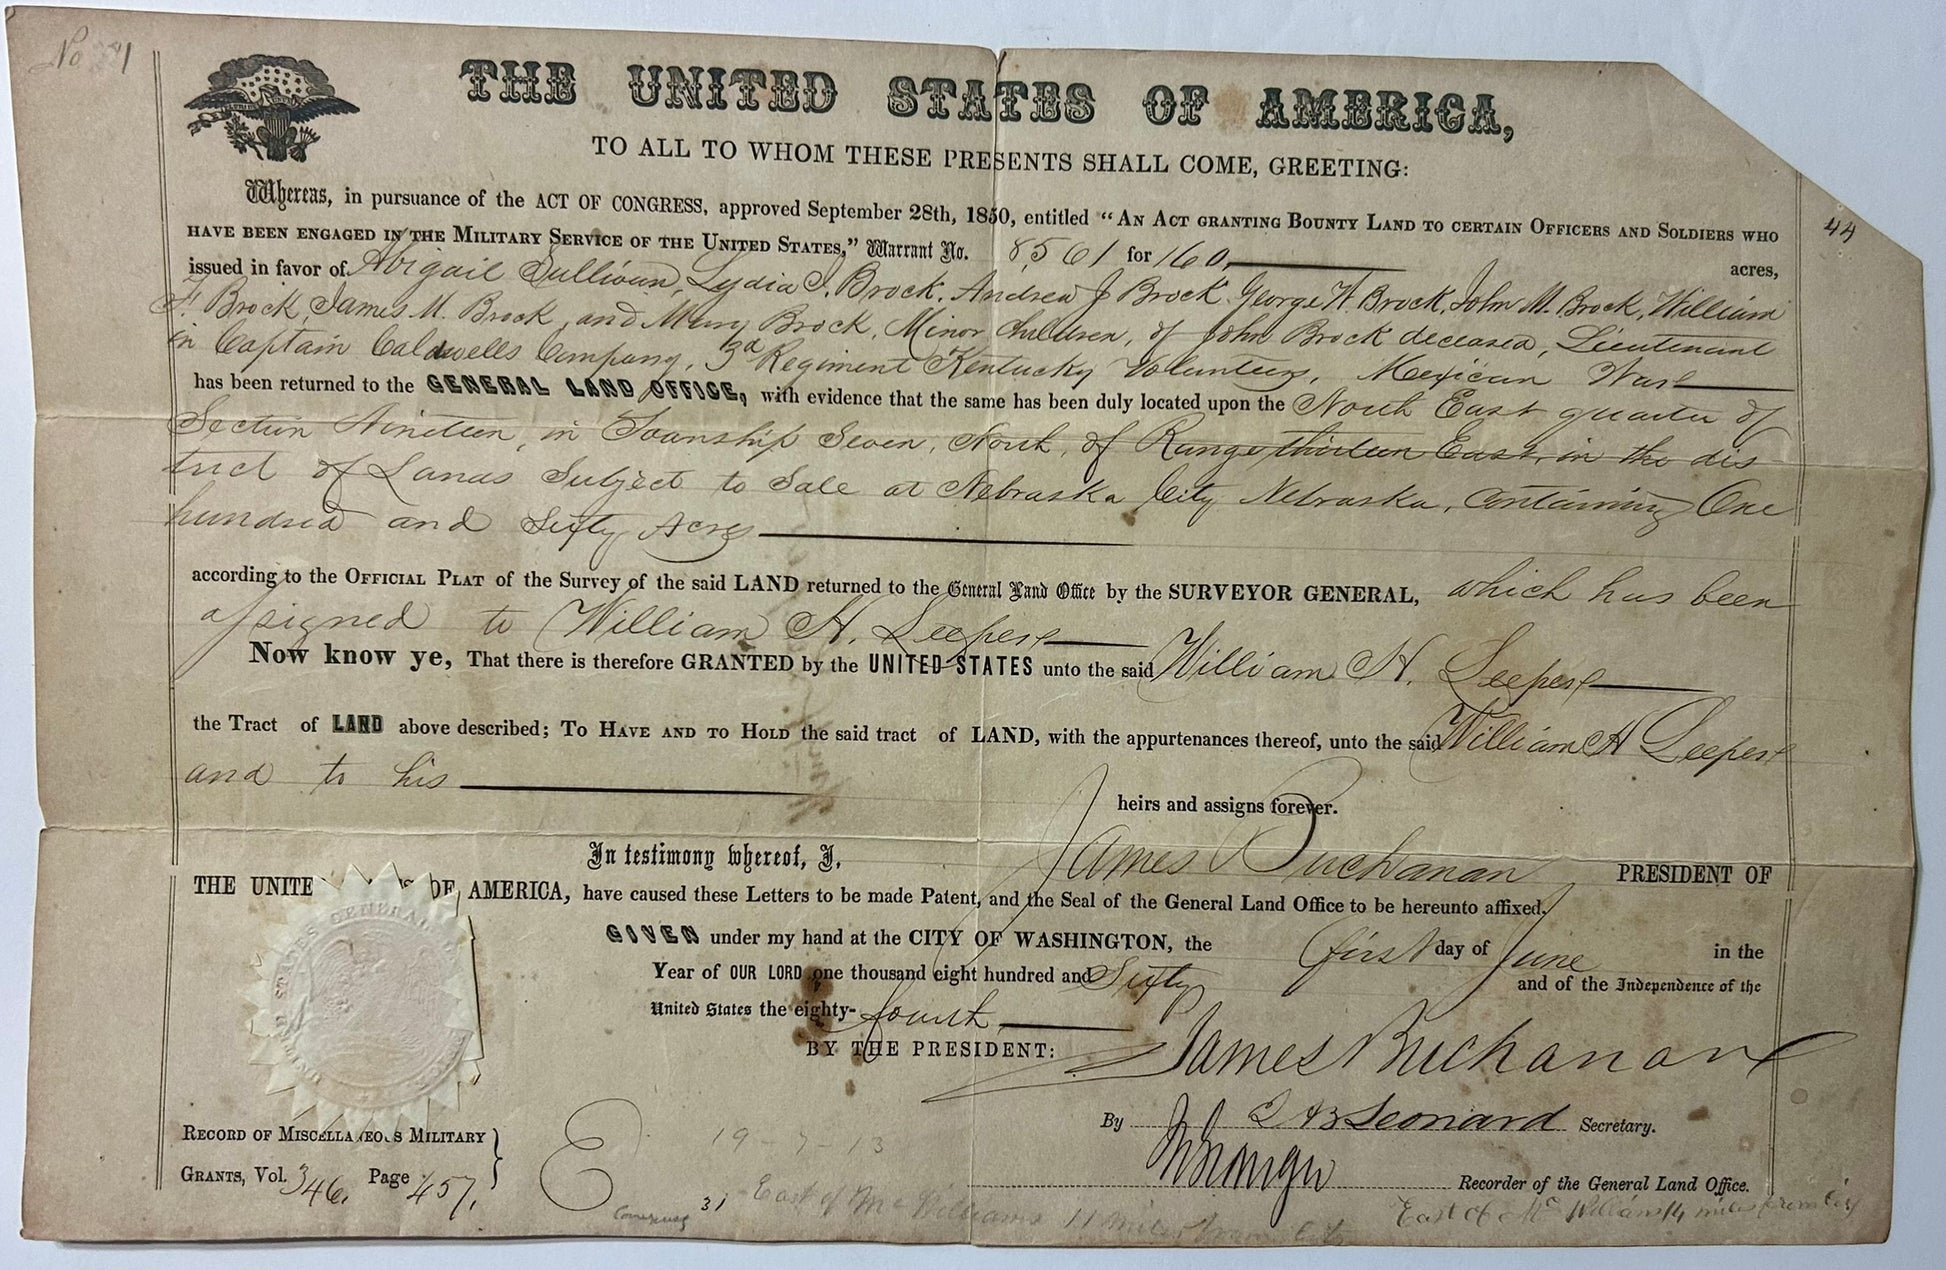 No
THE UNITED STATES OF AMERICA,
TO ALL TO WHOM THESE PRESENTS SHALL COME, GREETING:
44
Whereas, in pursuance of the ACT OF CONGRESS, approved September 28th, 1850, entitled "AN ACT GRANTING BOUNTY LAND TO CERTAIN OFFICERS AND SOLDIERS WHO
HAVE BEEN ENGAGED IN THE MILITARY SERVICE OF THE UNITED STATES," Warrant No. 8,561 for 160, acres,
issued in favor of Abigail Sullivan, Lydia J. Brock, Andrew J Brock, George W. Brock, John M. Brock, William
F. Brock, James M. Brock, and Mary Brock, Minor children, of John Brock deceased, Lieutenant
in Captain Caldwells Company, 3d Regiment Kentucky Volunteers, Mexican War
has been returned to the GENERAL LAND OFFICE, with evidence that the same has been duly located upon the North East quarter of
Section Nineteen, in Township Seven, North, of Range thirteen East, in the dis
trict of Lands Subject to Sale at Nebraska City Nebraska, Containing One
hundred and Sixty Acres
according to the OFFICIAL PLAT of the Survey of the said LAND returned to the General Land Office by the SURVEYOR GENERAL, which has been
assigned to William H. Leeper
Now know ye, That there is therefore GRANTED by the UNITED STATES unto the said William H. Leeper
the Tract of LAND above described; TO HAVE AND TO HOLD the said tract of LAND, with the appurtenances thereof, unto the said William H Leeper
and to his
heirs and assigns forever.
In testimony whereof, I, James Buchanan PRESIDENT OF
THE UNITE OF AMERICA, have caused these Letters to be made Patent, and the Seal of the General Land Office to be hereunto affixed.
GIVEN under my hand at the CITY OF WASHINGTON, the first day of June in the
Year of OUR LORD one thousand eight hundred and Sixty and of the Independence of the
United States the eighty-fourth
BY THE PRESIDENT: James Buchanan
By J. B. Leonard Secretary.
RECORD OF MISCELLANEOUS MILITARY
GRANTS, Vol. 346, Page 457,
E
19-7-13
Recorder of the General Land Office.
31 East of Mc Williams 11 miles from city
East of Mc Williams 14 miles from city